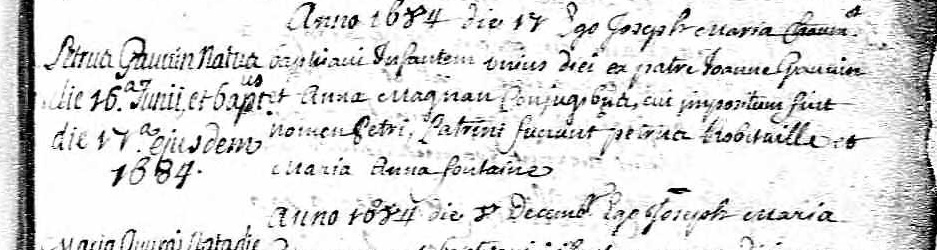 Anno 1684 die 17 Ego Joseph Maria
Petrus Gauvin Natus
die 16.a Junii, et baptus
die 17.a ejusdem
1684.
baptisavi Infantem unius diei ex patre Joanne Gauvin
et Anna Magnan Conjugibus, cui impositum fuit
nomen Petri, Patrini fuerunt petrus Robitaille et
Maria Anna fontaine
Anno 1684 die 8 Decembr Ego Joseph Maria